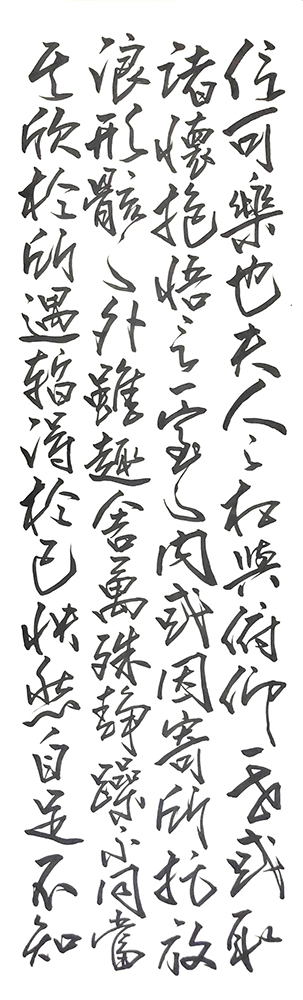 信可樂也夫人之相與俯仰一世或取
諸懷抱悟言一室之內或因寄所托放
浪形骸之外雖趣舍萬殊靜躁不同當
其欣於所遇暫得於己快然自足不知